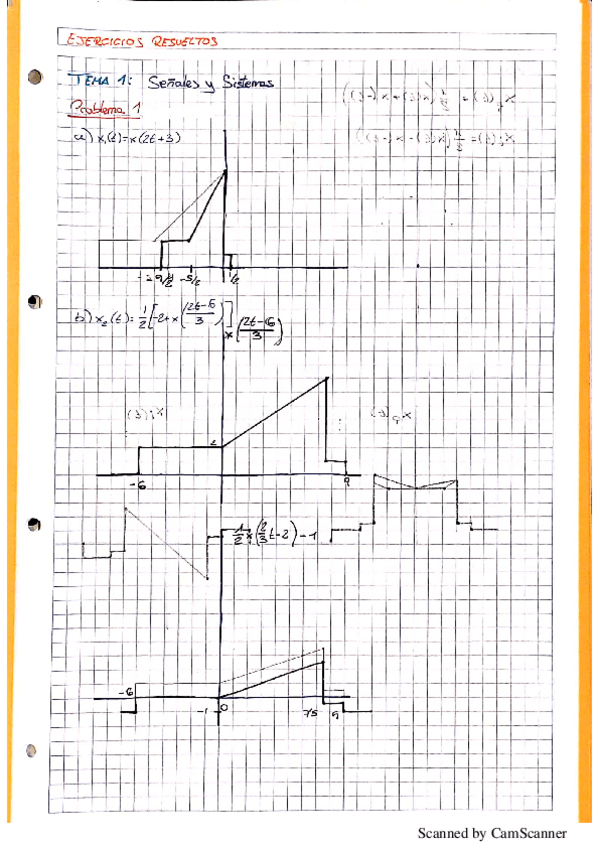 EJERCICIOS RESUELTOS
TEMA 1: Señales y Sistemas
Problema 1
a) x₁(t)=x(2t+3)
-5/2 1/2
b) x₂(t)=1/2[-2+x((2t-6)/3)]
x((2t-6)/3)
2
-6 9
1/2 x(2/3 t-2)-1
-6
-1 0 7.5 9
Scanned by CamScanner